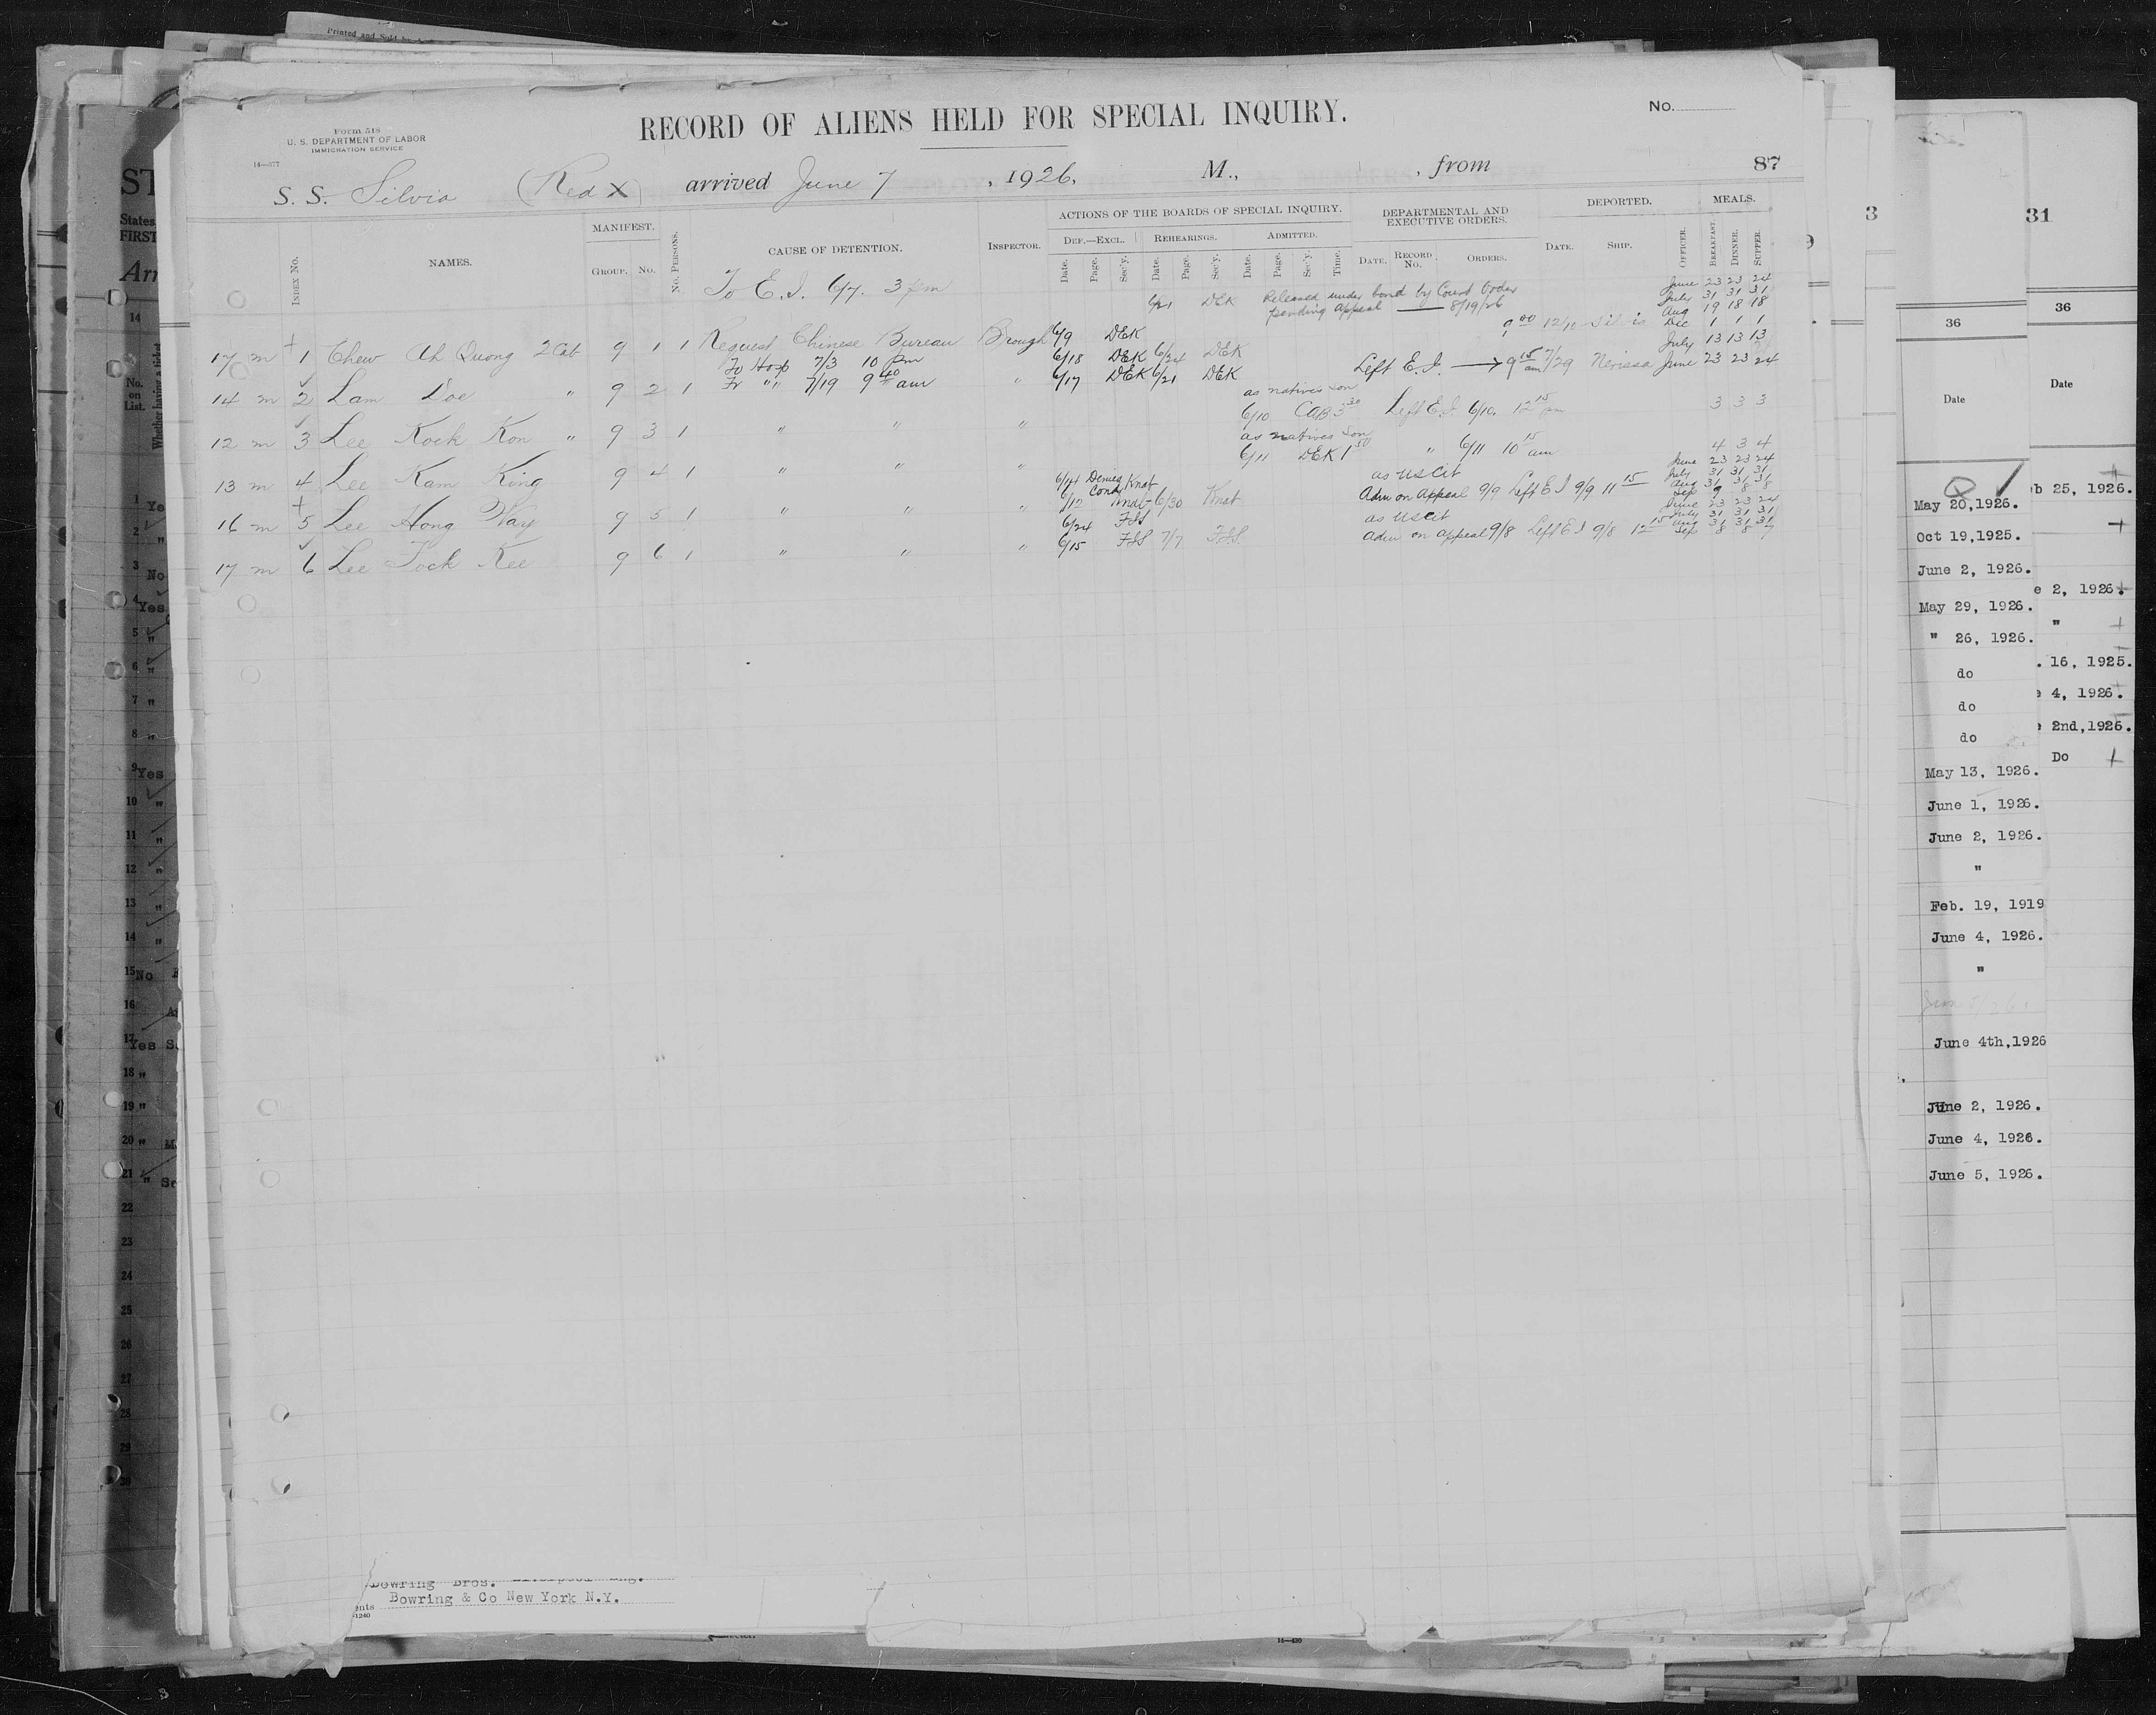 Printed and Sold by
Form 518
U. S. DEPARTMENT OF LABOR
IMMIGRATION SERVICE
14—377
RECORD OF ALIENS HELD FOR SPECIAL INQUIRY.
No.
87
S. S. Silvia (Red X) arrived June 7, 1926, M., , from
INDEX No. NAMES. MANIFEST. GROUP. No. No. PERSONS. CAUSE OF DETENTION. INSPECTOR.
ACTIONS OF THE BOARDS OF SPECIAL INQUIRY.
DEF.—EXCL. REHEARINGS. ADMITTED.
Date. Page. Sec'y. Date. Page. Sec'y. Date. Page. Sec'y. Time.
DEPARTMENTAL AND EXECUTIVE ORDERS.
DATE. RECORD No. ORDERS.
DEPORTED.
DATE. SHIP.
OFFICER.
MEALS.
BREAKFAST. DINNER. SUPPER.
To E.I. 6/7. 3 pm
June 23 23 24
July 31 31 31
6/21 DEK Released under bond by Court Order
Aug 19 18 18
pending appeal — 8/19/26
9 00 12/10 Silvia Dec 1 1 1
17 m + 1 Chew Ah Quong 2 Cab 9 1 1 Request Chinese Bureau Brough 6/9 DEK
July 13 13 13
To Hosp 7/3 10 pm 6/18 DEK 6/24 DEK
14 m 2 Lam Doe " 9 2 1 Fr " " 7/19 9 40 am " 6/17 DEK 6/21 DEK Left E.I. → 9 15 am 7/29 Nerissa June 23 23 24
as natives son
6/10 CAB 3 30 Left E.I. 6/10. 12 15 pm 3 3 3
12 m 3 Lee Kock Kon " 9 3 1 " " "
as natives son
6/11 DEK 1 50 " 6/11 10 15 am 4 3 4
13 m 4 Lee Kam King 9 4 1 " " "
June 23 23 24
6/14 Denied Knat as US Cit July 31 31 31
Cond Aug 31 31 31
6/12 6/30 Knat Adm on Appeal 9/9 Left E I 9/9 11 15 Sep 9 8 8
16 m + 5 Lee Hong Way 9 5 1 " " "
June 23 23 24
6/24 FSS as US Cit July 31 31 31
6/15 FSS 7/7 FSS. Adm on appeal 9/8 Left E I 9/8 12 15 Aug 31 31 31
Sep 8 8 7
17 m 6 Lee Tock Kee 9 6 1 " " "
Bowring Bros.
Bowring & Co New York N.Y.
ents
-1240
14—430
ST
States
FIRST
Arr
14
No. on List.
Whether having a ticket
1 Ye
2 "
3 No
4 Yes
5 "
6 "
7 "
8 "
9 Yes
10 "
11 "
12 "
13 "
14 "
15 No
16
17 Yes
18 "
19 "
20 "
21 "
22
23
24
25
26
27
28
29
30
3
36
Date
May 20,1926.
Oct 19,1925.
June 2, 1926.
May 29, 1926.
" 26, 1926.
do
do
do
May 13, 1926.
June 1, 1926.
June 2, 1926.
"
Feb. 19, 1919
June 4, 1926.
"
June 4th,1926
June 2, 1926.
June 4, 1926.
June 5, 1926.
31
36
Date
b 25, 1926.
e 2, 1926.
"
. 16, 1925.
e 4, 1926.
e 2nd,1926.
Do